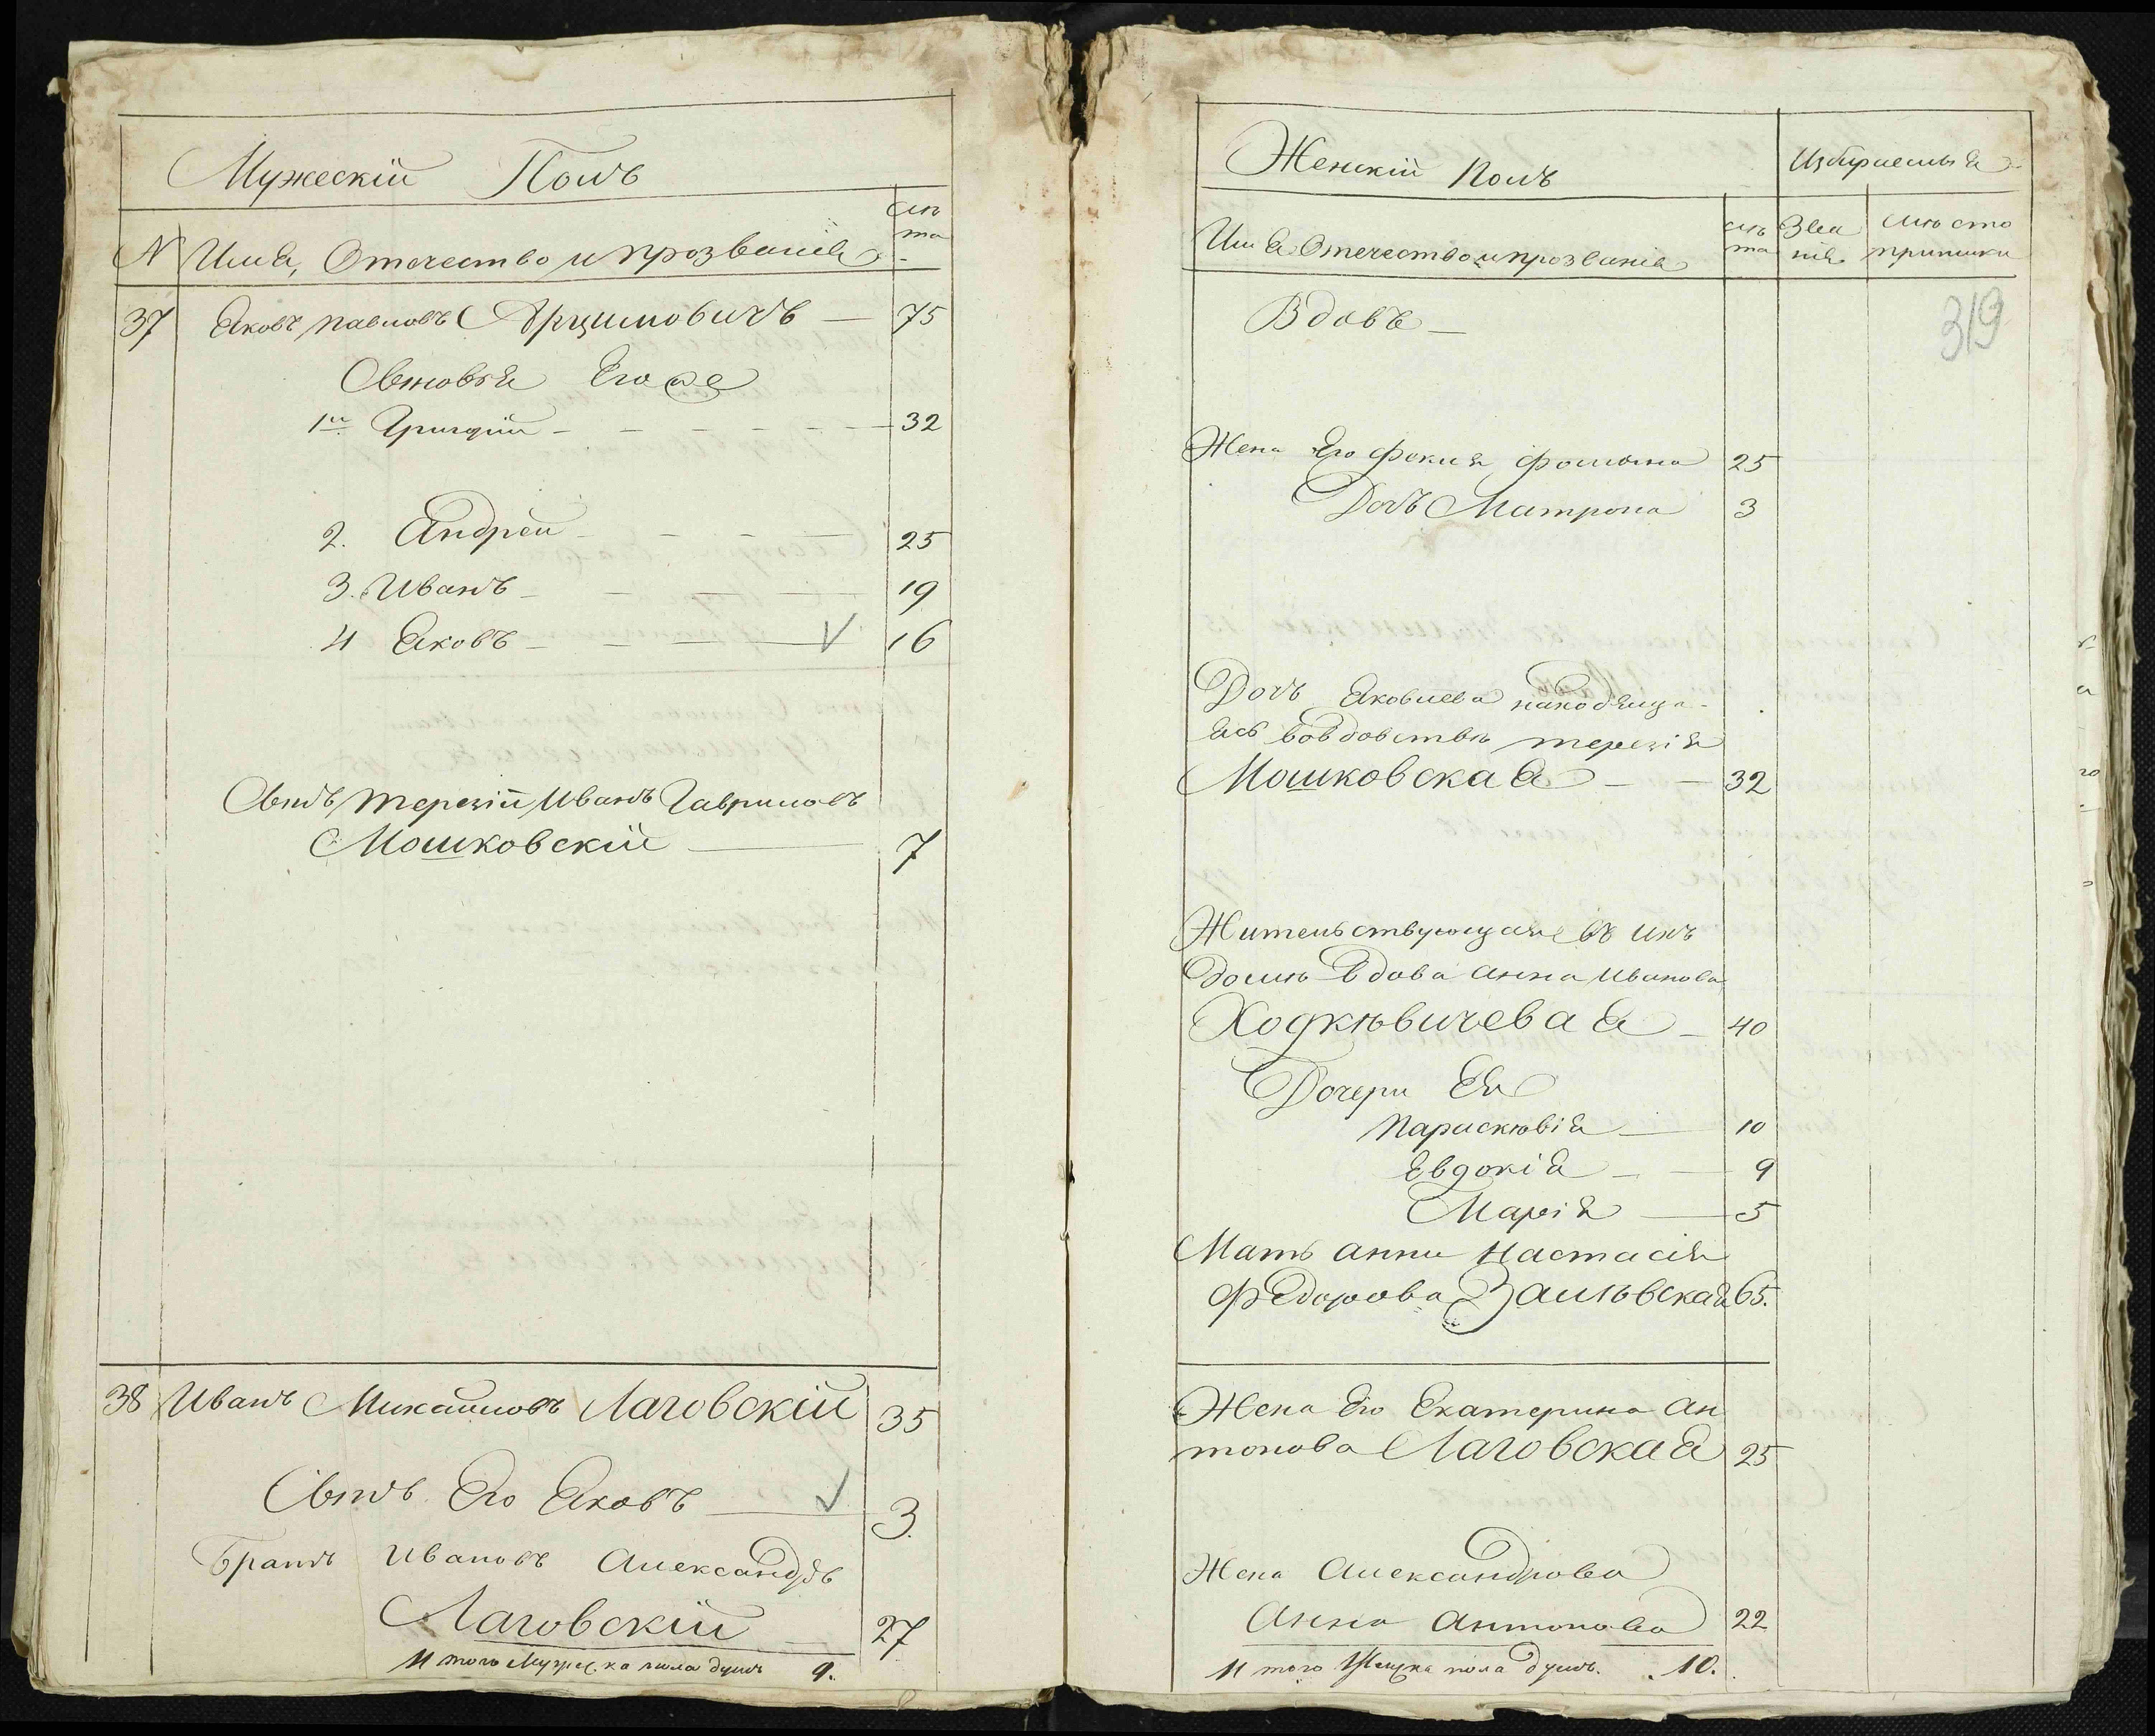 Мужескій Полъ
лѣ
та
N Имя, Отечество и прозваніе
37 Яковъ павловъ Арцимовичъ — 75
Сыновья Его же
1й Григорій - - - - - - 32
2. Андрей - - - - 25
3. Иванъ - - - - 19
4 Яковъ - - - - V 16
Сынъ терезіи Иванъ Гавриловъ
Мошковскій — 7
38 Иванъ Михайловъ Лаговскій 35
Сынъ Его Яковъ — V 3.
Братъ Ивановъ Александръ
Лаговскій — 27
Итого Мужеска пола душъ 9.
Женскій Полъ
Избираемыя
Имя Отечество и прозваніе
лѣ
та
Зва
нія
мѣсто
приписки
Вдовъ —
319
Жена Его Фекла Фомина 25
Дочь Матрона 3
Дочь Яковлева находяща-
яся вовдовствѣ терезія
Мошковская — — 32
Жительствующая въ ихъ
домѣ вдова Анна Иванова
Ходкѣвичевая — 40
Дочери Ея
Параскѣвія — 10
Евдокія — — 9
Марія — 5
Мать анны Настасія
Федорова 65.
Жена Его Екатерина Ан
тонова Лаговская 25
Жена Александрова
Анна Антонова 22
Итого Женска пола душъ. 10.